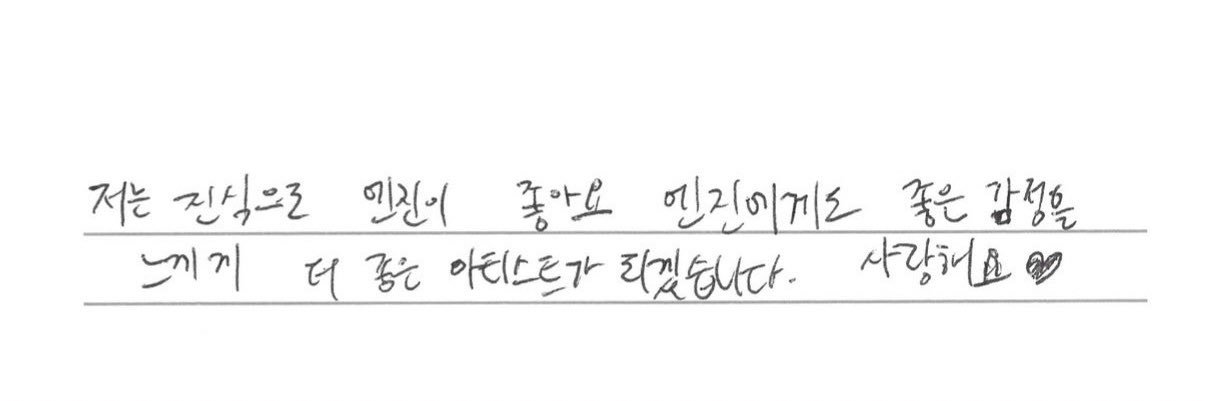 저는 진식으로 엔진이 좋아요 엔진에게도 좋은 감정을
느끼게 더 좋은 아티스트가 되겠습니다. 사랑해요 ♥